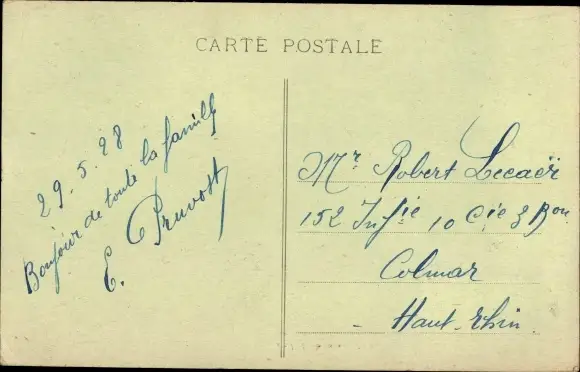 CARTE POSTALE
29.5.28
Bonjour de toute la famille
E. Pruvost
Mr. Robert Lecaër
152 Infie 10 Cie 3 Bon
Colmar
Haut-Rhin.